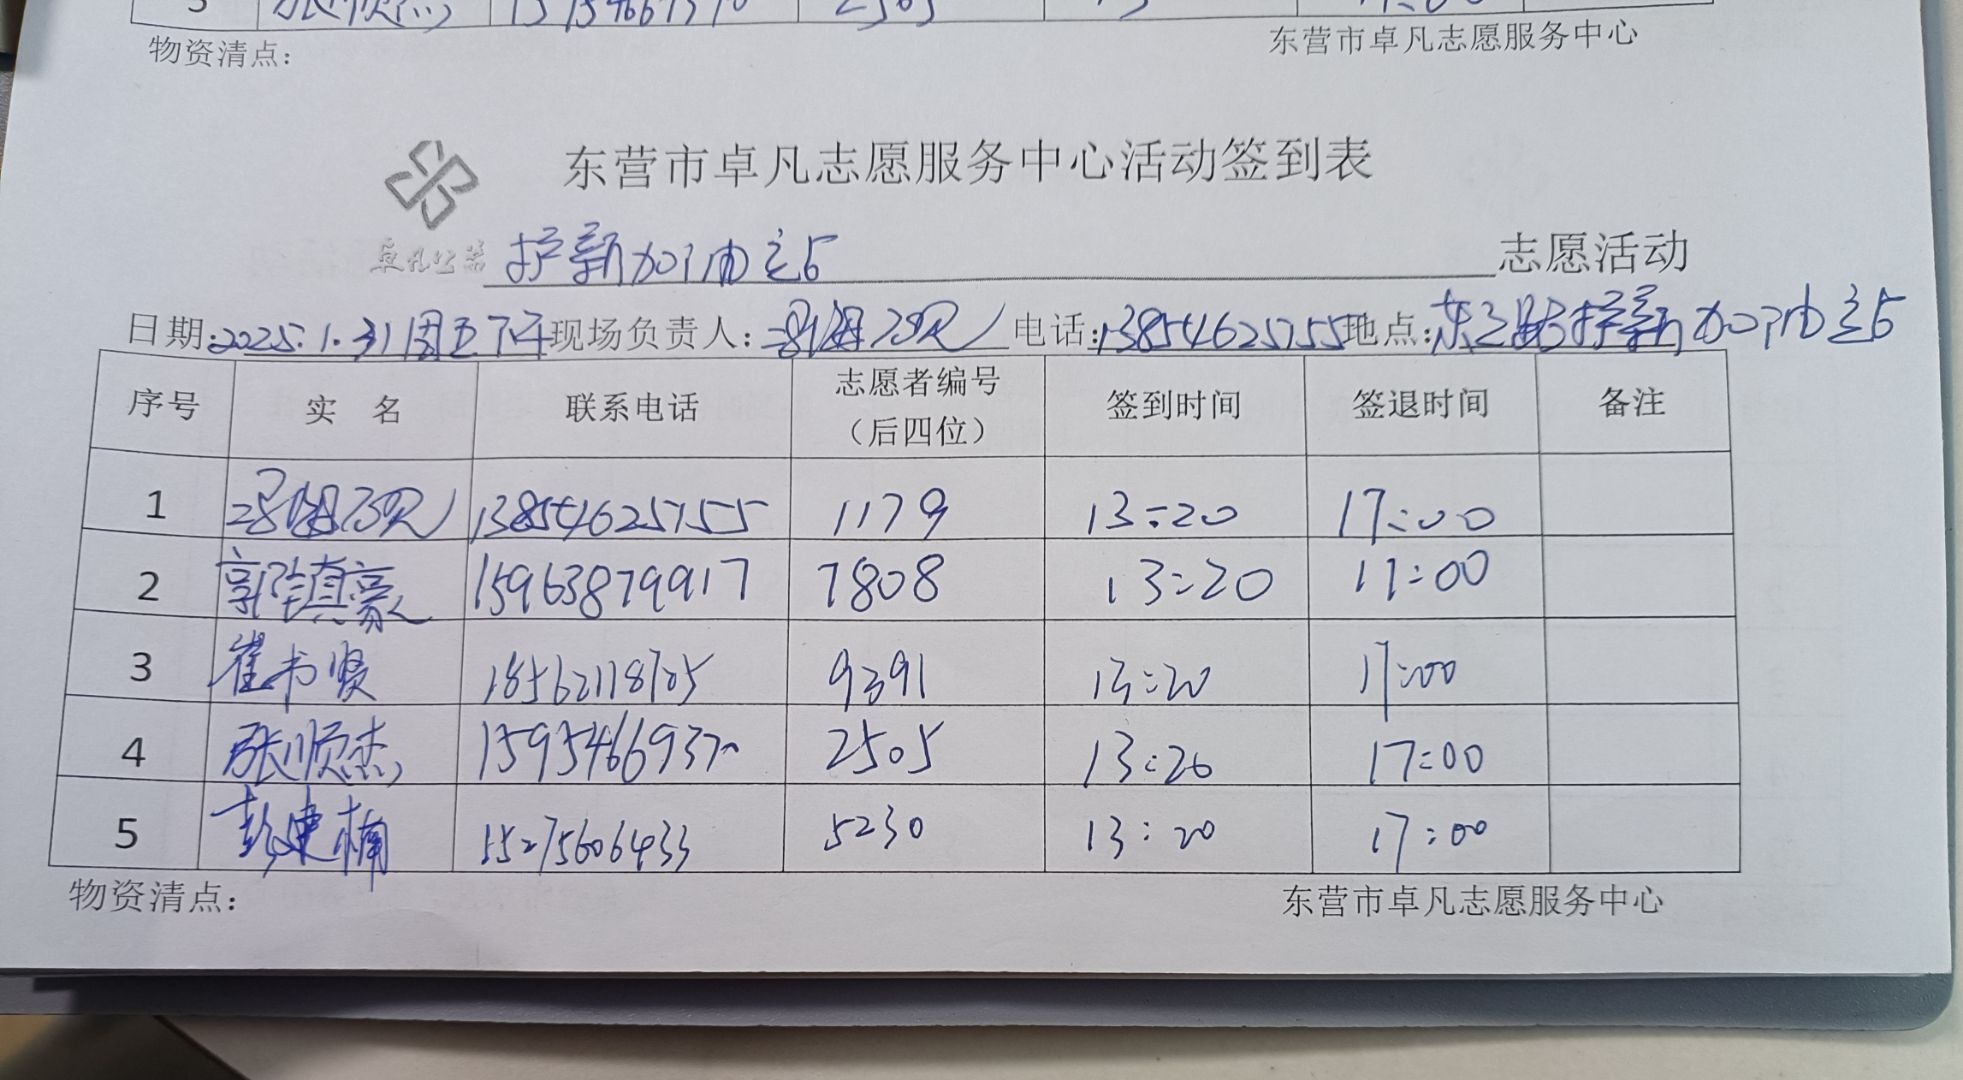 物资清点： 东营市卓凡志愿服务中心
东营市卓凡志愿服务中心活动签到表
卓凡公益 护新加油站 志愿活动
日期：2025.1.31周五下午 现场负责人： 电话：13854625755 地点：东三路护新加油站
序号 实 名 联系电话 志愿者编号（后四位） 签到时间 签退时间 备注
1 13854625755 1179 13:20 17:00
2 郭镇豪 15963879917 7808 13:20 17:00
3 崔书贤 18562118725 9391 13:20 17:00
4 张顺杰 15954669370 2505 13:20 17:00
5 彭建楠 15275606433 5230 13:20 17:00
物资清点： 东营市卓凡志愿服务中心